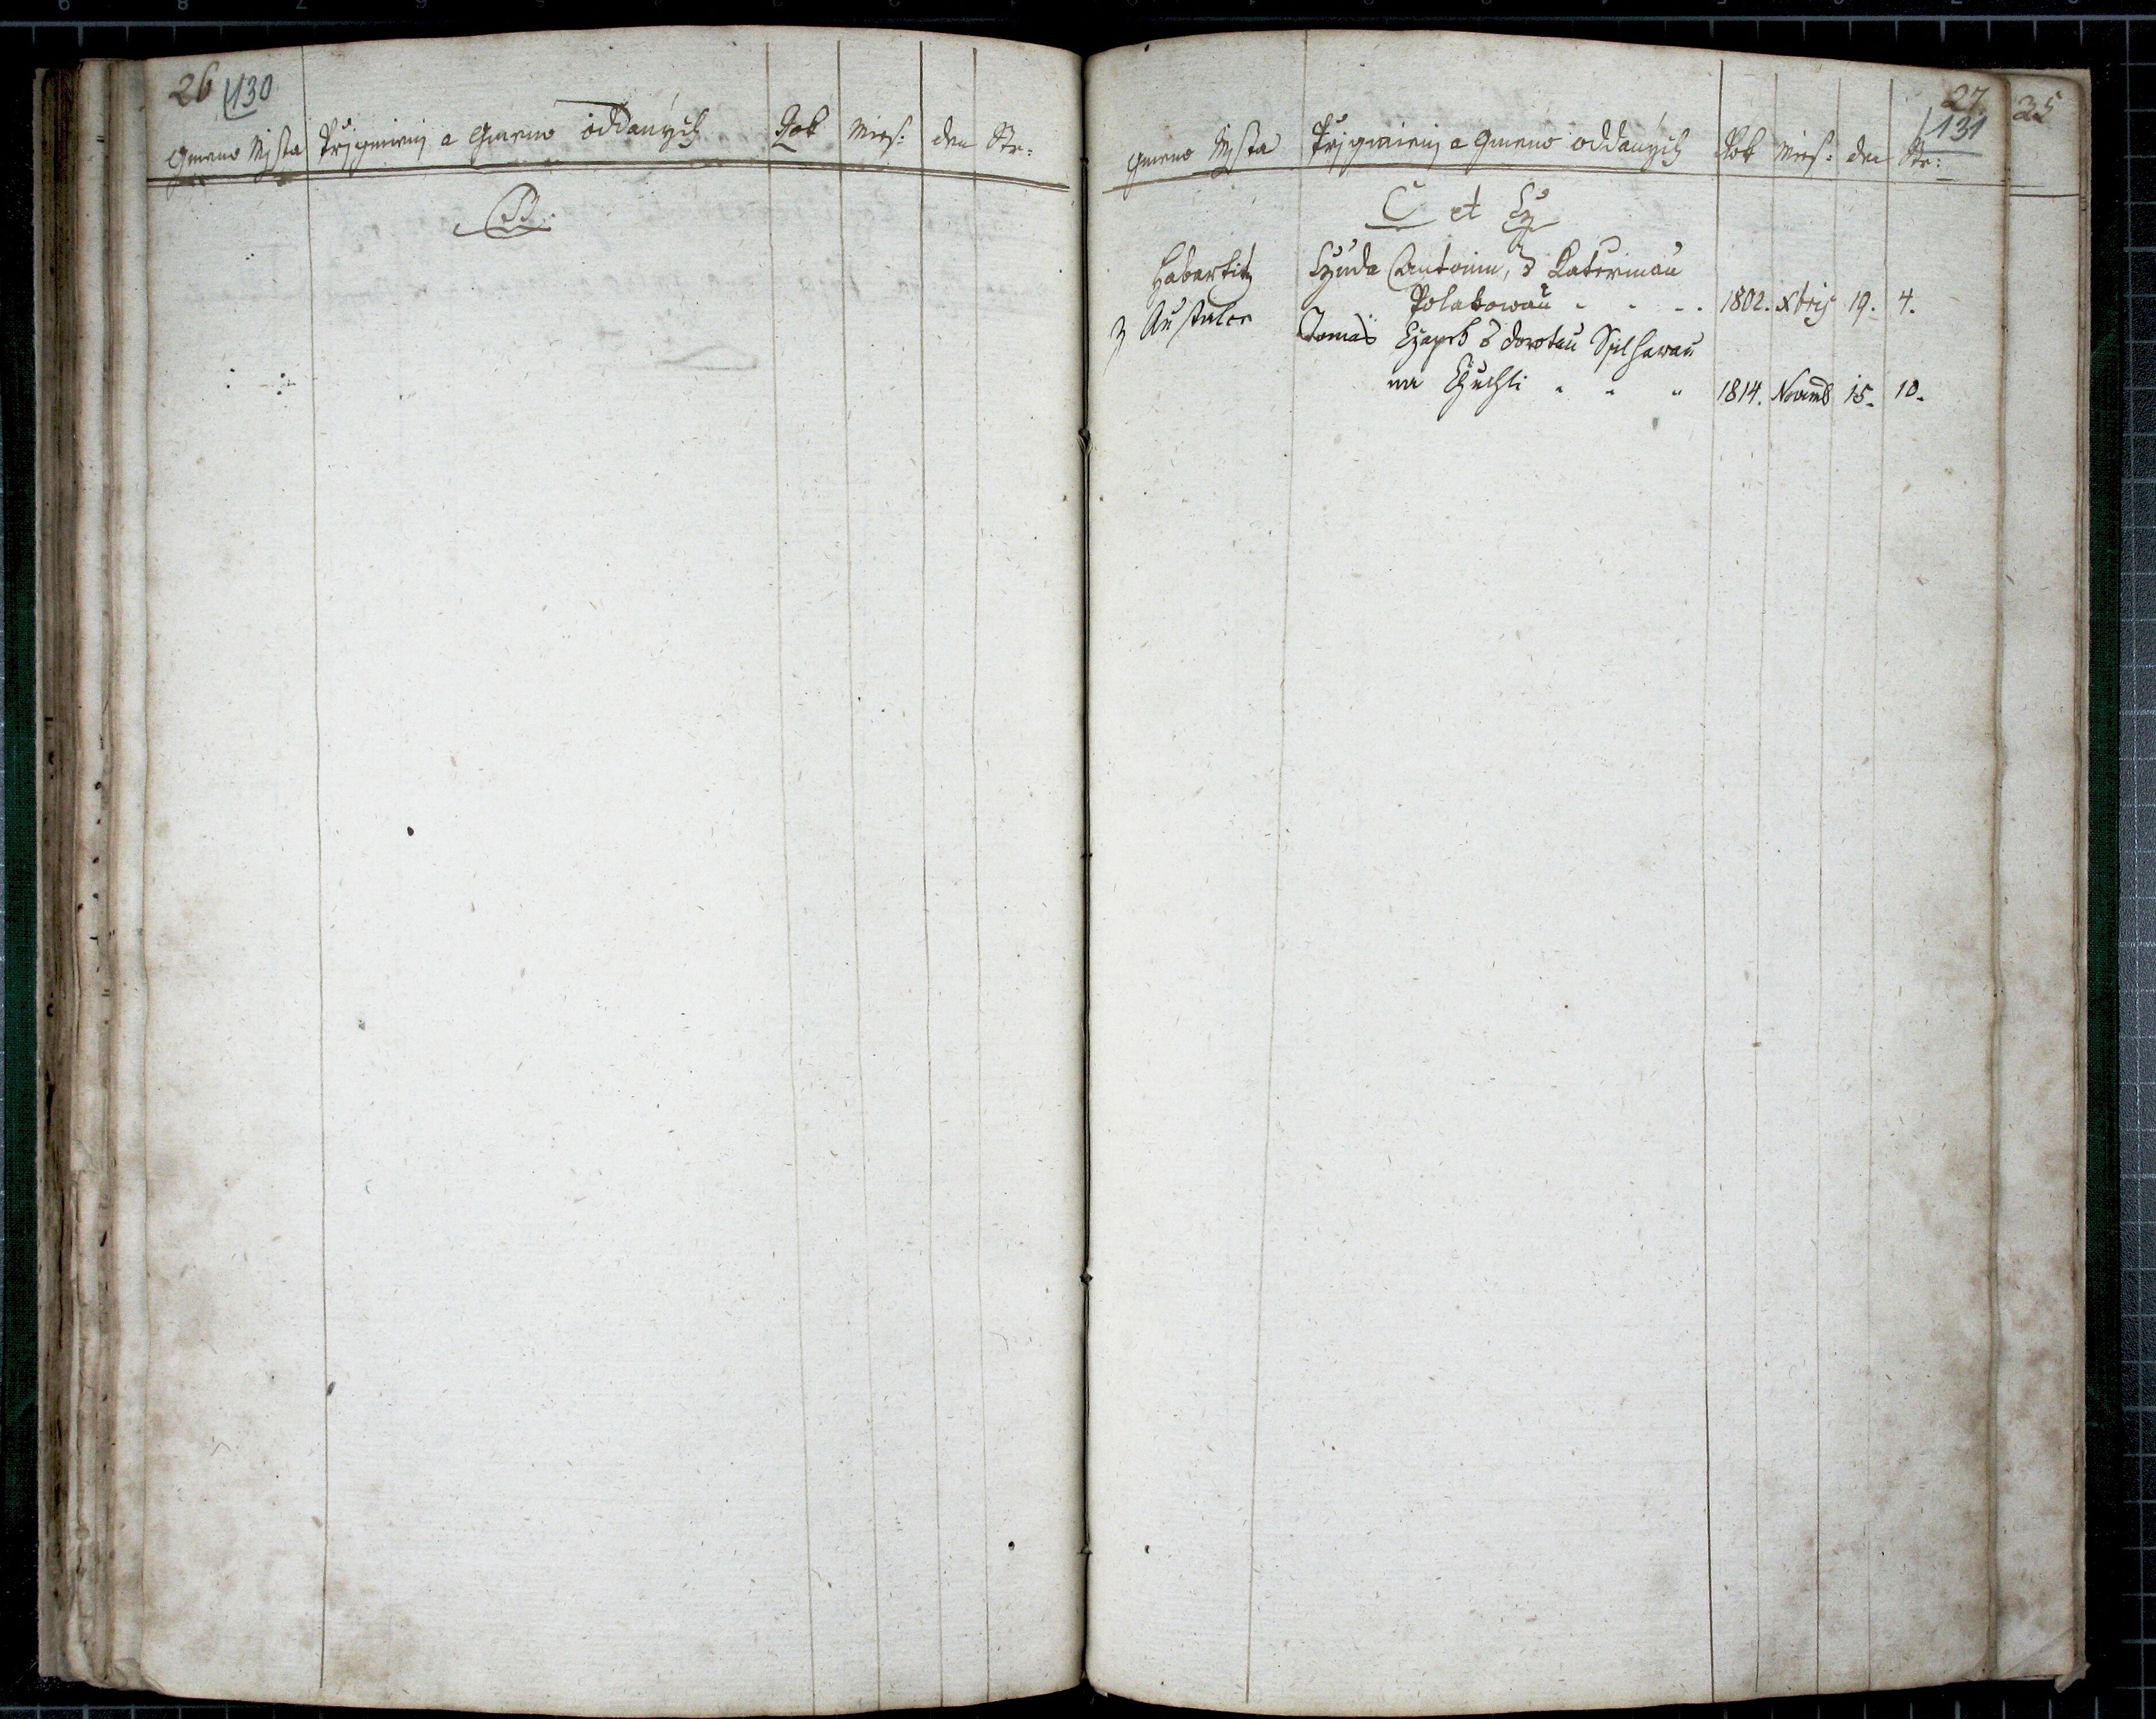 26 130
Gmeno Mjsta Přjgmienj a Gmeno oddaných Rok Mies: den Str:
B.
27
131
35
Gmeno Mjsta Přjgmienj a Gmeno oddaných Rok Mies: den Str:
C et Cž
Habartitz Czuda Antonin, s Kateřinau
Polakowau - - - 1802. xbris 19. 4.
z Austales Tomáš s Dorotau
na - - - 1814. Novemb 15. 10.